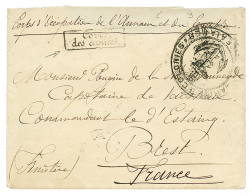 Corps d'Occupation de l'Annam et du Tonkin
Corr.
des armées
COLONIES
Monsieur Pougin de la
Capitaine de vaisseau
Commandant le d'Estaing
Brest
(Finistère)
France